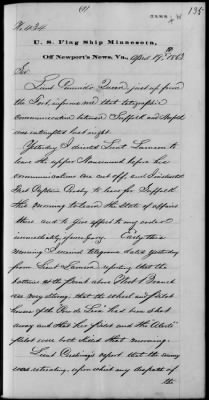 (1)
135
No. 434
U. S. Flag Ship Minnesota,
Off Newport's News, Va., April 19th 1863
Sir
Lieut Commdr Queen just up from
the Fort, informs me that telegraphic
communication between Suffolk and Norfolk
was interrupted last night.
Yesterday I directed Lieut Lamson to
leave the upper Nansemond before his
communications are cut off, and I instructed
Fleet Captain Crosby to leave for Suffolk
this morning to learn the state of affairs
there and to give effect to my orders
immediately, if necessary. Early this
morning I received telegrams dated yesterday
from Lieut Lamson reporting that the
battery at the point above West Branch
was very strong, that the wheel and pilot
house of the Coeur de Lion had been shot
away and that her pilot and the Alert's
pilot were both killed that morning.
Lieut Cushing's report that the enemy
was retreating, upon which my despatch of
the